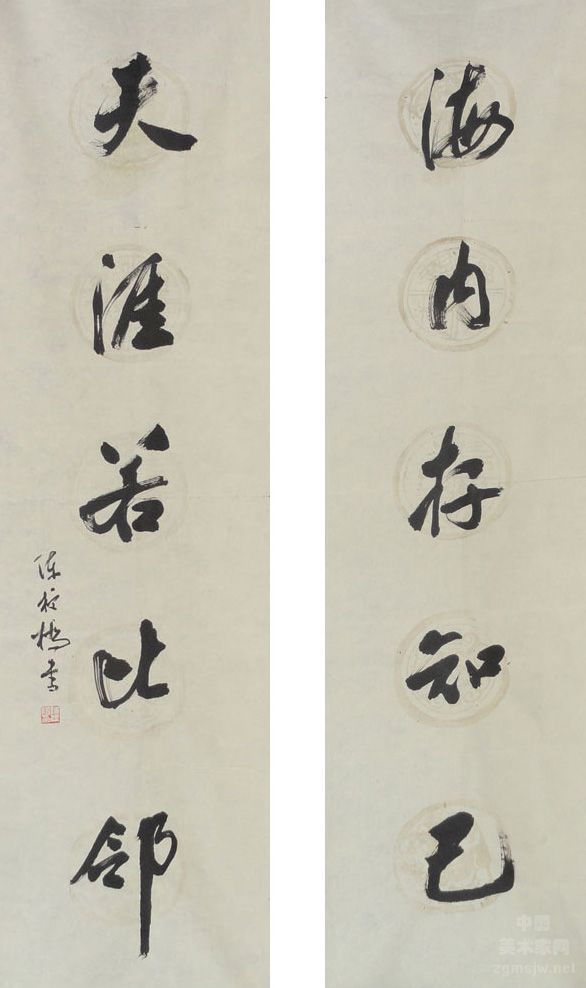 海内存知己
天涯若比邻
中国
美术家网
zgmsjw.net